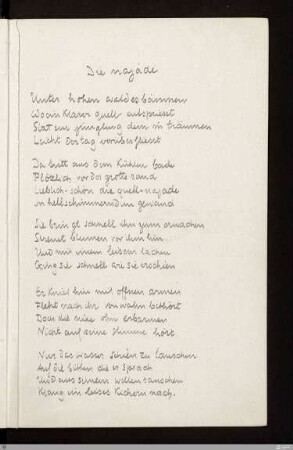 Die najade
Unter hohen waldesbäumen
Wo ein klarer quell entspriesst
Liegt ein jüngling dem in träumen
Leicht der tag vorüberfliesst
Da tritt aus dem kühlen bade
Plötzlich vor der grotte rand
Lieblich-schön die quell-najade
In hellschimmerndem gewand
Sie bringt schnell ihn zum erwachen
Streut blumen vor ihm hin
Und mit einem leisen lachen
Ging sie schnell wie sie erschien
Er kniet hin mit offnen armen
Fleht nach ihr von wahn bethört
Doch die nixe ohn erbarmen
Nicht auf seine stimme hört
Nur das wasser schien zu lauschen
Auf die bitten die er sprach
Und aus seinem wellenrauschen
Klang ein leises kichern nach.